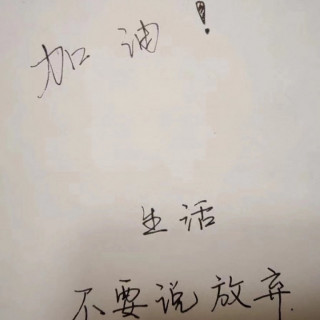 加油！
生活
不要说放弃